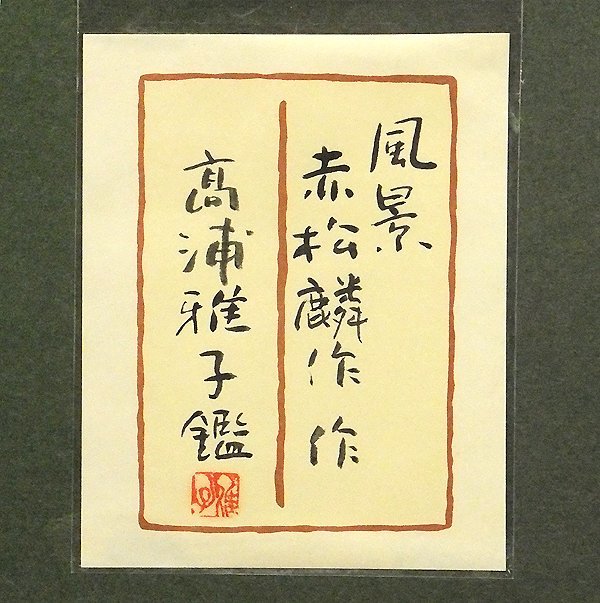 風景
赤松麟作 作
髙浦雅子鑑